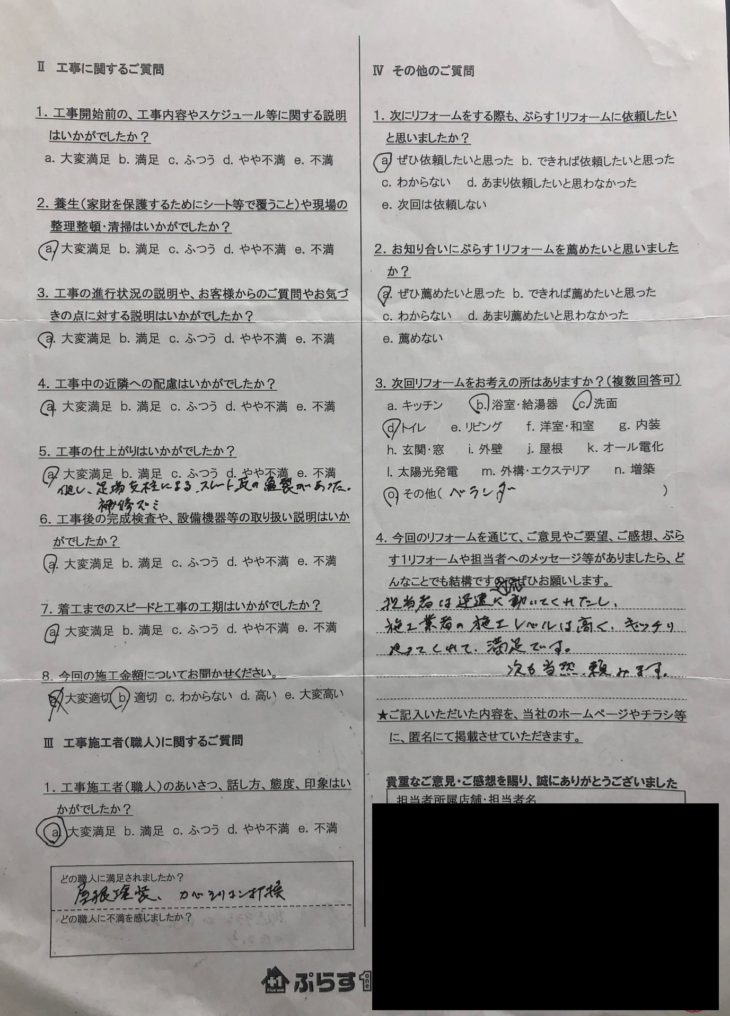 Ⅱ 工事に関するご質問
1. 工事開始前の、工事内容やスケジュール等に関する説明
はいかがでしたか？
a. 大変満足 b. 満足 c. ふつう d. やや不満 e. 不満
2. 養生（家財を保護するためにシート等で覆うこと）や現場の
整理整頓・清掃はいかがでしたか？
a. 大変満足 b. 満足 c. ふつう d. やや不満 e. 不満
3. 工事の進行状況の説明や、お客様からのご質問やお気づ
きの点に対する説明はいかがでしたか？
a. 大変満足 b. 満足 c. ふつう d. やや不満 e. 不満
4. 工事中の近隣への配慮はいかがでしたか？
a. 大変満足 b. 満足 c. ふつう d. やや不満 e. 不満
5. 工事の仕上がりはいかがでしたか？
a. 大変満足 b. 満足 c. ふつう d. やや不満 e. 不満
但し、足場支柱による、スレート瓦の亀裂があった。
補修ズミ
6. 工事後の完成検査や、設備機器等の取り扱い説明はいか
がでしたか？
a. 大変満足 b. 満足 c. ふつう d. やや不満 e. 不満
7. 着工までのスピードと工事の工期はいかがでしたか？
a. 大変満足 b. 満足 c. ふつう d. やや不満 e. 不満
8. 今回の施工金額についてお聞かせください。
a. 大変適切 b. 適切 c. わからない d. 高い e. 大変高い
Ⅲ 工事施工者（職人）に関するご質問
1. 工事施工者（職人）のあいさつ、話し方、態度、印象はい
かがでしたか？
a. 大変満足 b. 満足 c. ふつう d. やや不満 e. 不満
どの職人に満足されましたか？
屋根塗装、カベシリコン打換
どの職人に不満を感じましたか？
Ⅳ その他のご質問
1. 次にリフォームをする際も、ぷらす1リフォームに依頼したい
と思いましたか？
a. ぜひ依頼したいと思った b. できれば依頼したいと思った
c. わからない d. あまり依頼したいと思わなかった
e. 次回は依頼しない
2. お知り合いにぷらす1リフォームを薦めたいと思いました
か？
a. ぜひ薦めたいと思った b. できれば薦めたいと思った
c. わからない d. あまり薦めたいと思わなかった
e. 薦めない
3. 次回リフォームをお考えの所はありますか？（複数回答可）
a. キッチン b. 浴室・給湯器 c. 洗面
d. トイレ e. リビング f. 洋室・和室 g. 内装
h. 玄関・窓 i. 外壁 j. 屋根 k. オール電化
l. 太陽光発電 m. 外構・エクステリア n. 増築
o. その他（ ベランダー ）
4. 今回のリフォームを通じて、ご意見やご要望、ご感想、ぷら
す1リフォームや担当者へのメッセージ等がありましたら、ど
んなことでも結構ですのでぜひお願いします。
担当者は 動いてくれたし、
施工業者の施工レベルは高く、キッチリ
やってくれて、満足です。
次も当然、頼みます。
★ご記入いただいた内容を、当社のホームページやチラシ等
に、匿名にて掲載させていただきます。
貴重なご意見・ご感想を賜り、誠にありがとうございました
担当者所属店舗・担当者名
+1 ぷらす1